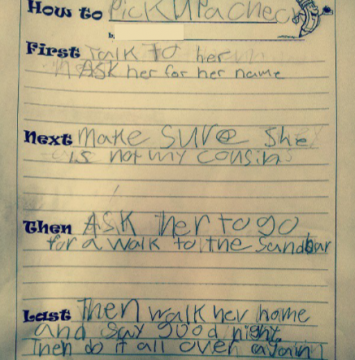 How to Pick Up a check
by
First Talk to her
ASK her for her name
Next Make SURe She
is not my cousin
Then ASK her to go
for a walk to the Sandbar
Last Then walk her home
and say good night
Then do it all over again